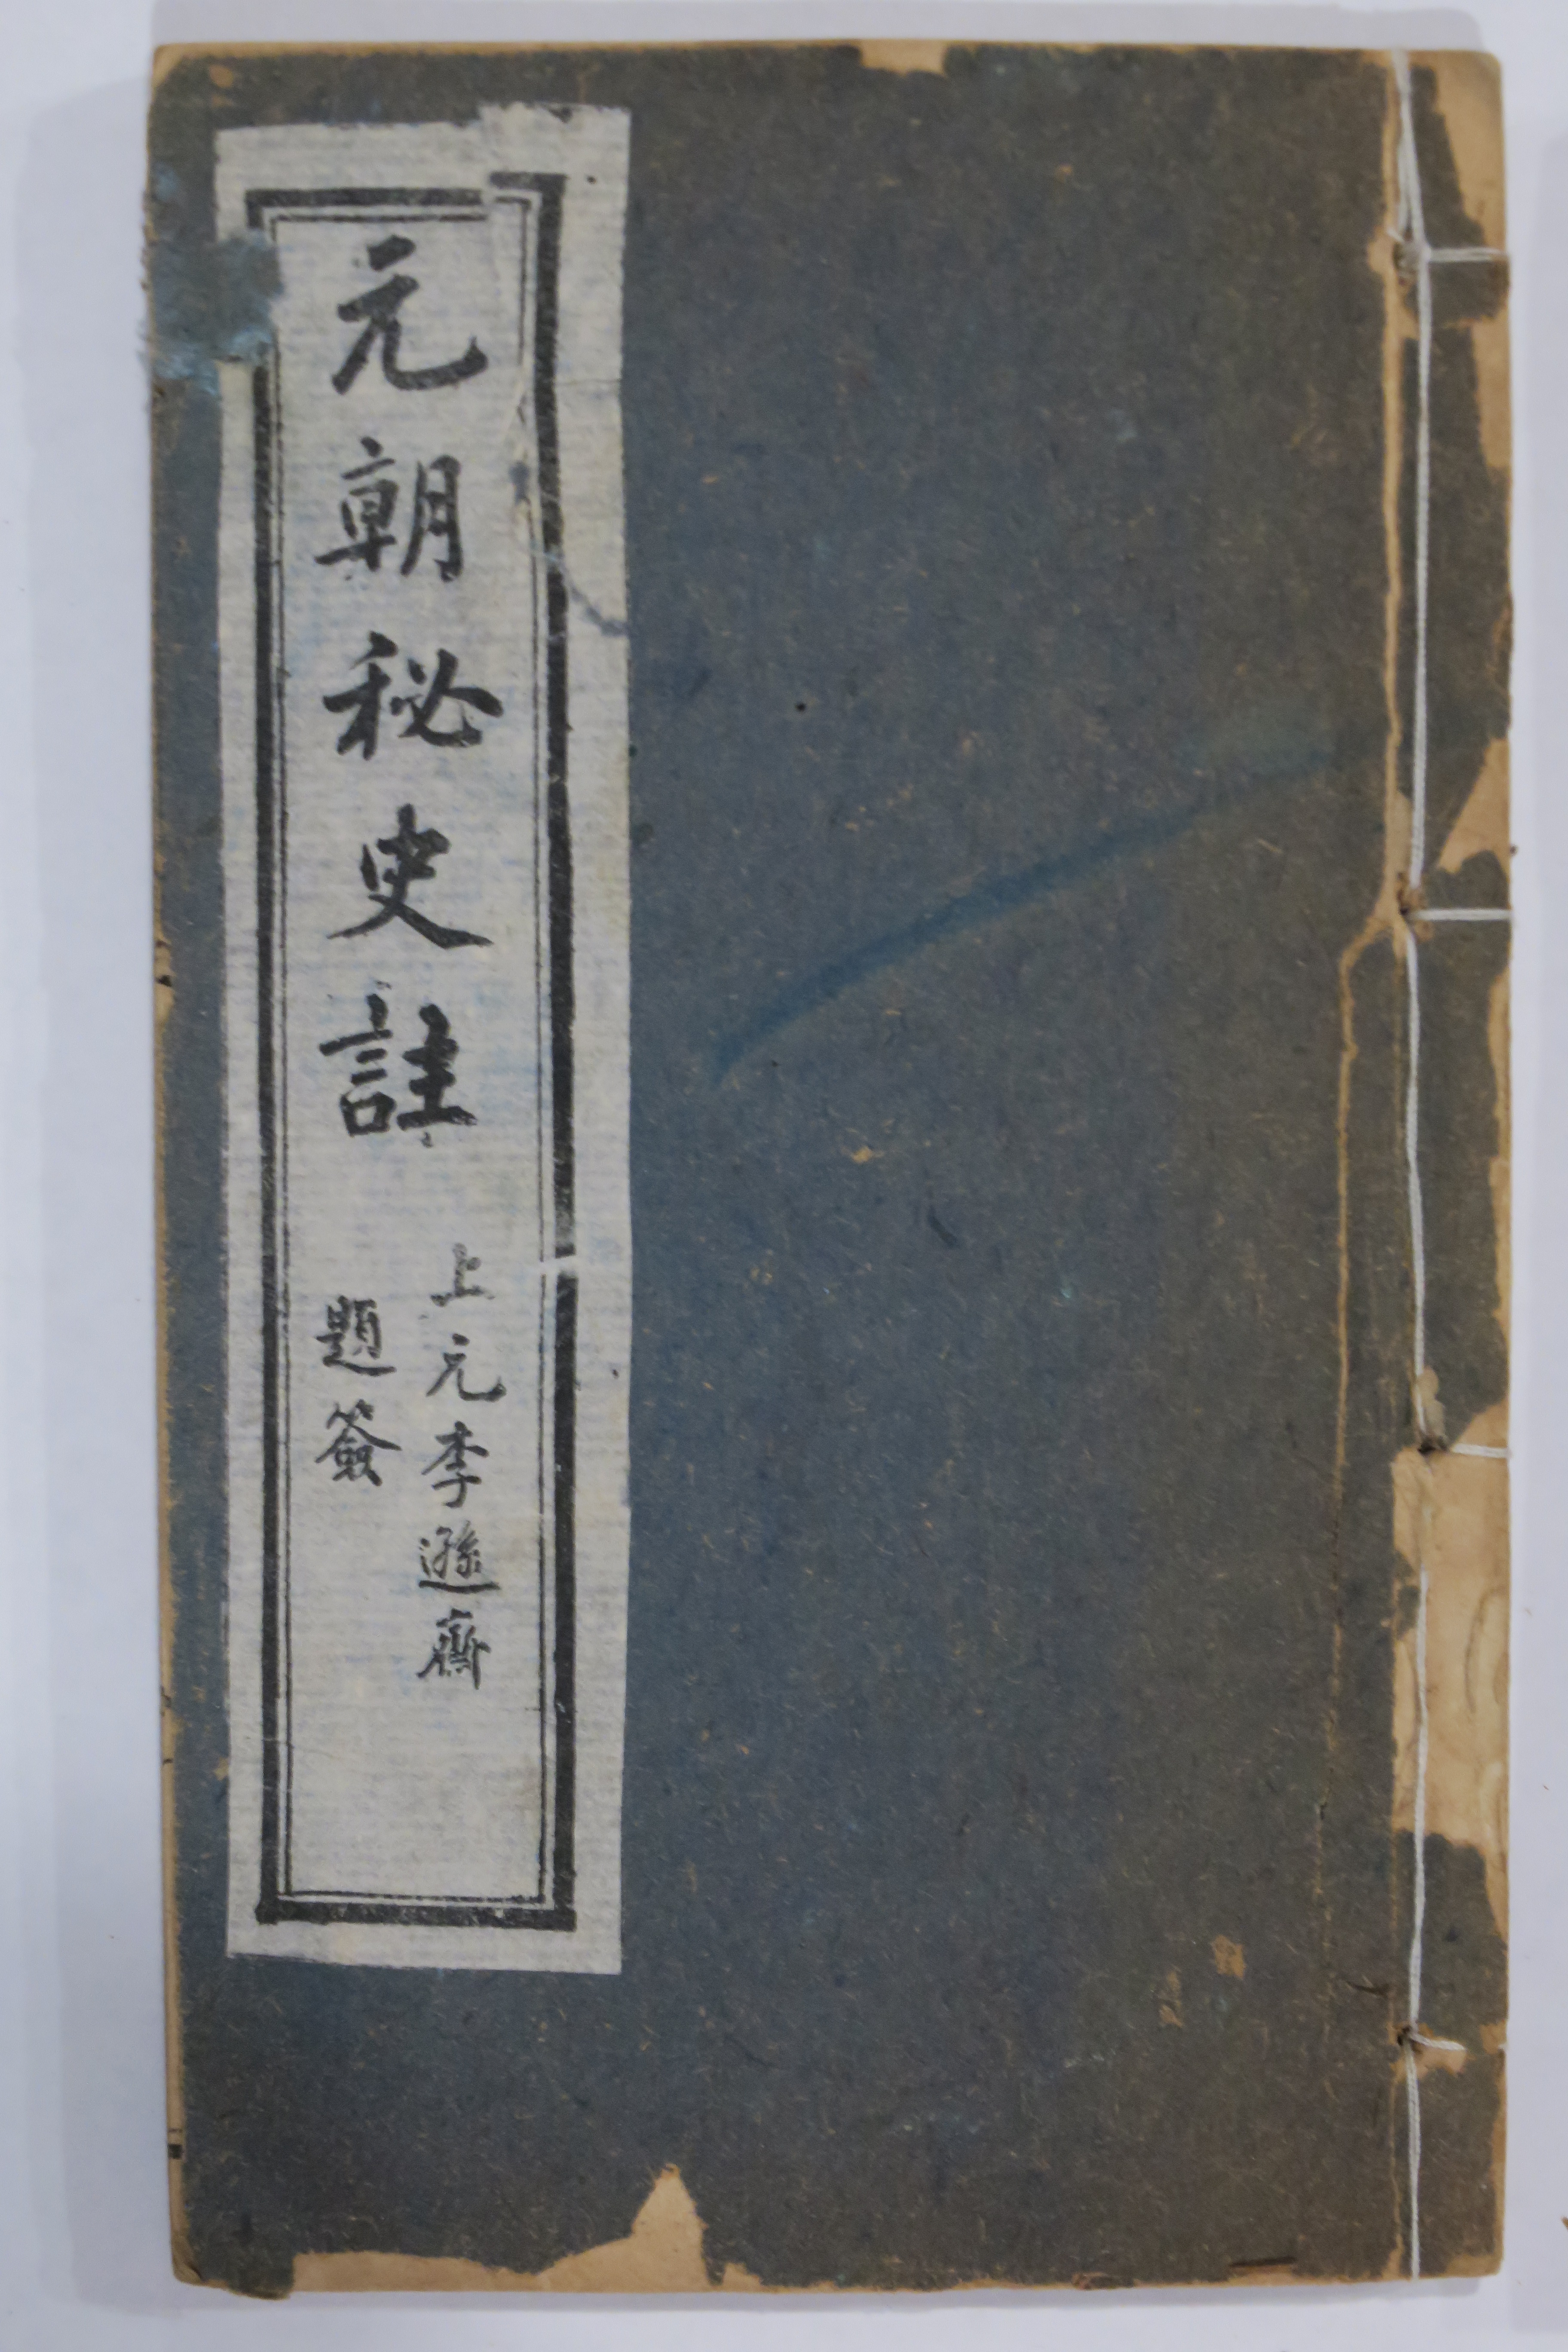 元朝秘史註
上元李遜齋
題簽